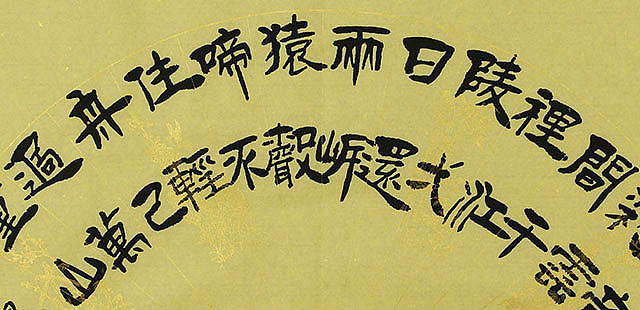 彩雲
間千
裡江
陵弌
日還
兩岸
猿聲
啼不
住輕
舟已
過萬
重山